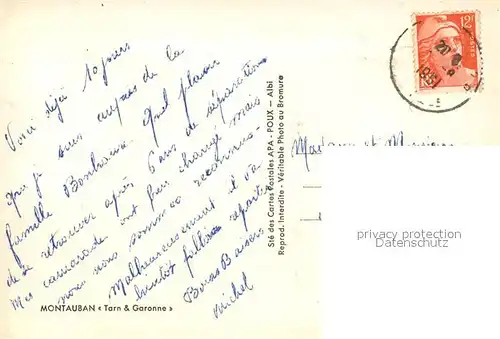 Voici déjà 10 jours
que je suis auprès de la
famille Bonhaure. Quel plaisir
de se retrouver après 6 ans de séparation
Mes camarades ont peu changé mais
nous nous sommes reconnus.
Malheureusement il va
bientôt falloir repartir
Bons Baisers
Michel
MONTAUBAN « Tarn & Garonne »
Sté des Cartes Postales APA - POUX - Albi
Reprod. Interdite - Véritable Photo au Bromure
12F
POSTES
20
1951
Madame et Monsieur
privates Datum
protected DATA